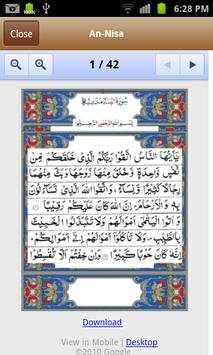 6:28 PM
Close
An-Nisa
1 / 42
سورة النساء مدنية
بسم الله الرحمن الرحيم
يَا أَيُّهَا النَّاسُ اتَّقُوا رَبَّكُمُ الَّذِي خَلَقَكُمْ مِنْ
نَفْسٍ وَاحِدَةٍ وَخَلَقَ مِنْهَا زَوْجَهَا وَبَثَّ مِنْهُمَا
رِجَالًا كَثِيرًا وَنِسَاءً وَاتَّقُوا اللَّهَ الَّذِي تَسَاءَلُونَ
بِهِ وَالْأَرْحَامَ إِنَّ اللَّهَ كَانَ عَلَيْكُمْ رَقِيبًا وَآتُوا
الْيَتَامَى أَمْوَالَهُمْ وَلَا تَتَبَدَّلُوا الْخَبِيثَ بِالطَّيِّبِ
وَلَا تَأْكُلُوا أَمْوَالَهُمْ إِلَى أَمْوَالِكُمْ
إِنَّهُ كَانَ حُوبًا كَبِيرًا وَإِنْ خِفْتُمْ أَلَّا تُقْسِطُوا
Download
View in Mobile | Desktop
©2010 Google